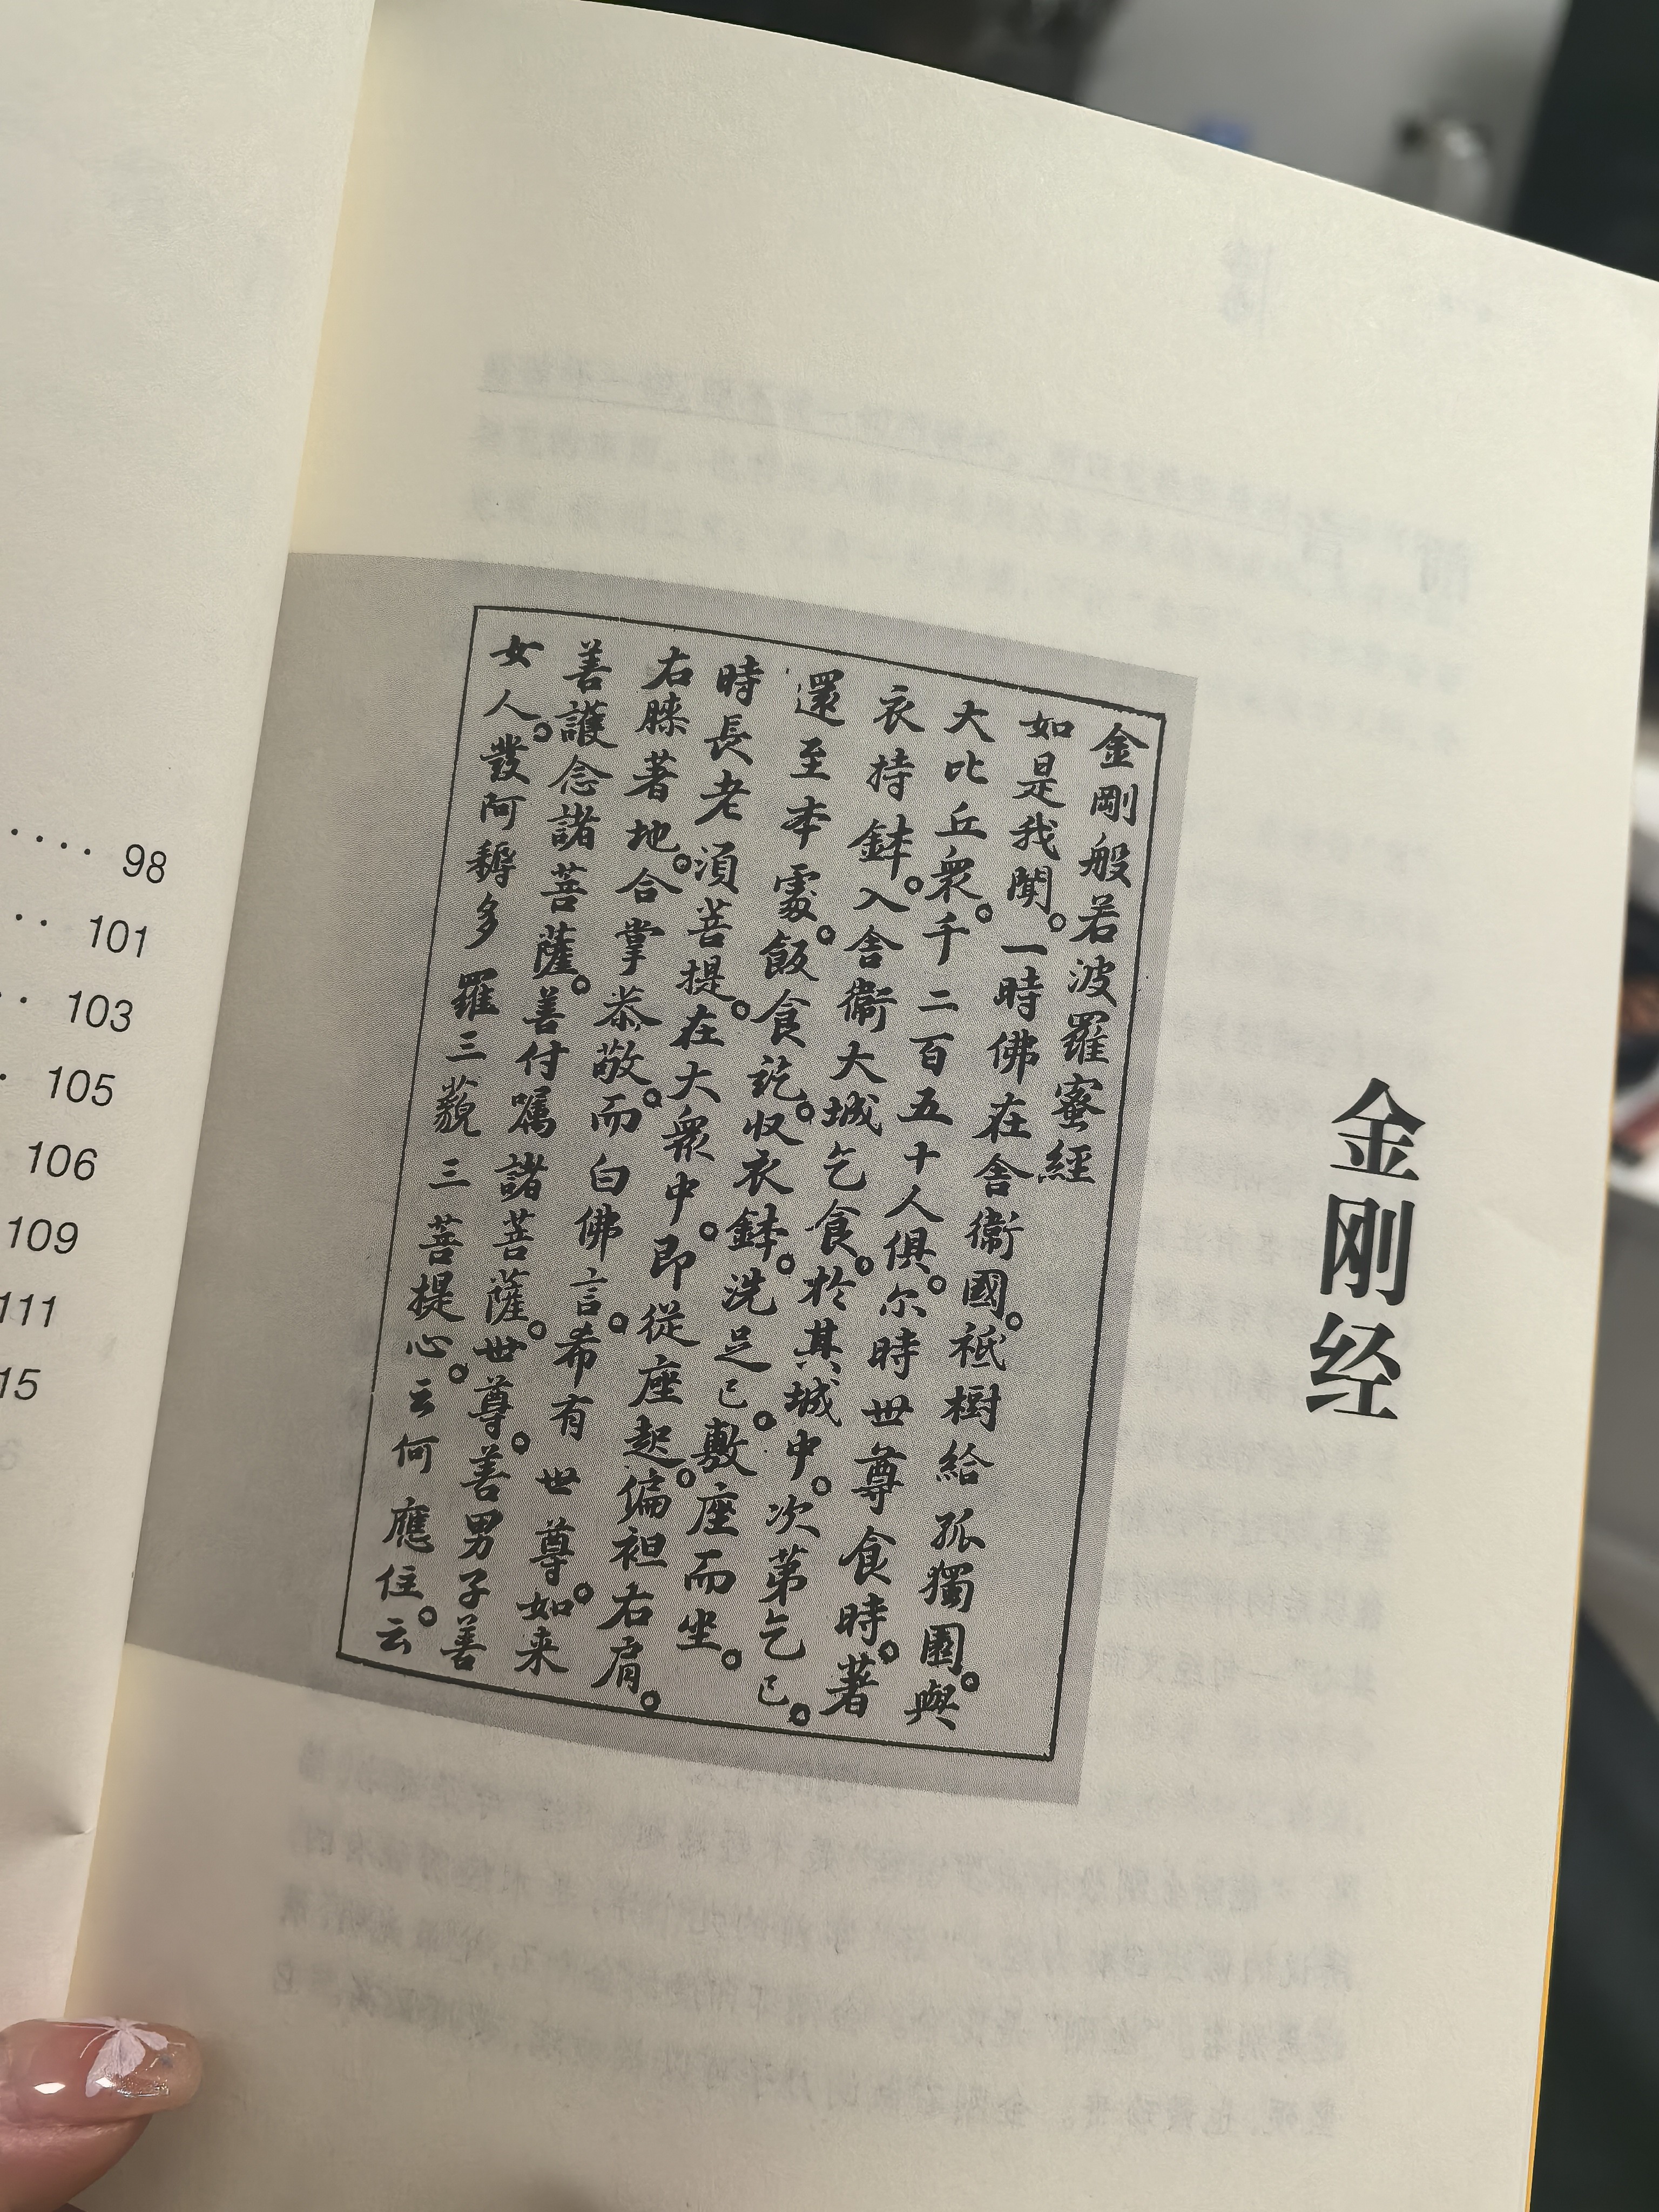 金刚经
金剛般若波羅蜜經
如是我聞。一時佛在舍衞國。祇樹給孤獨園。與
大比丘衆。千二百五十人俱。尔時世尊食時。著
衣持鉢。入舍衞大城乞食。於其城中。次第乞已。
還至本處。飯食訖。収衣鉢。洗足已。敷座而坐。
時長老須菩提。在大衆中。即從座起。偏袒右肩。
右膝著地。合掌恭敬。而白佛言。希有世尊。如来
善護念諸菩薩。善付嘱諸菩薩。世尊。善男子善
女人。發阿耨多羅三藐三菩提心。云何應住。云
98
101
103
105
106
109
111
15